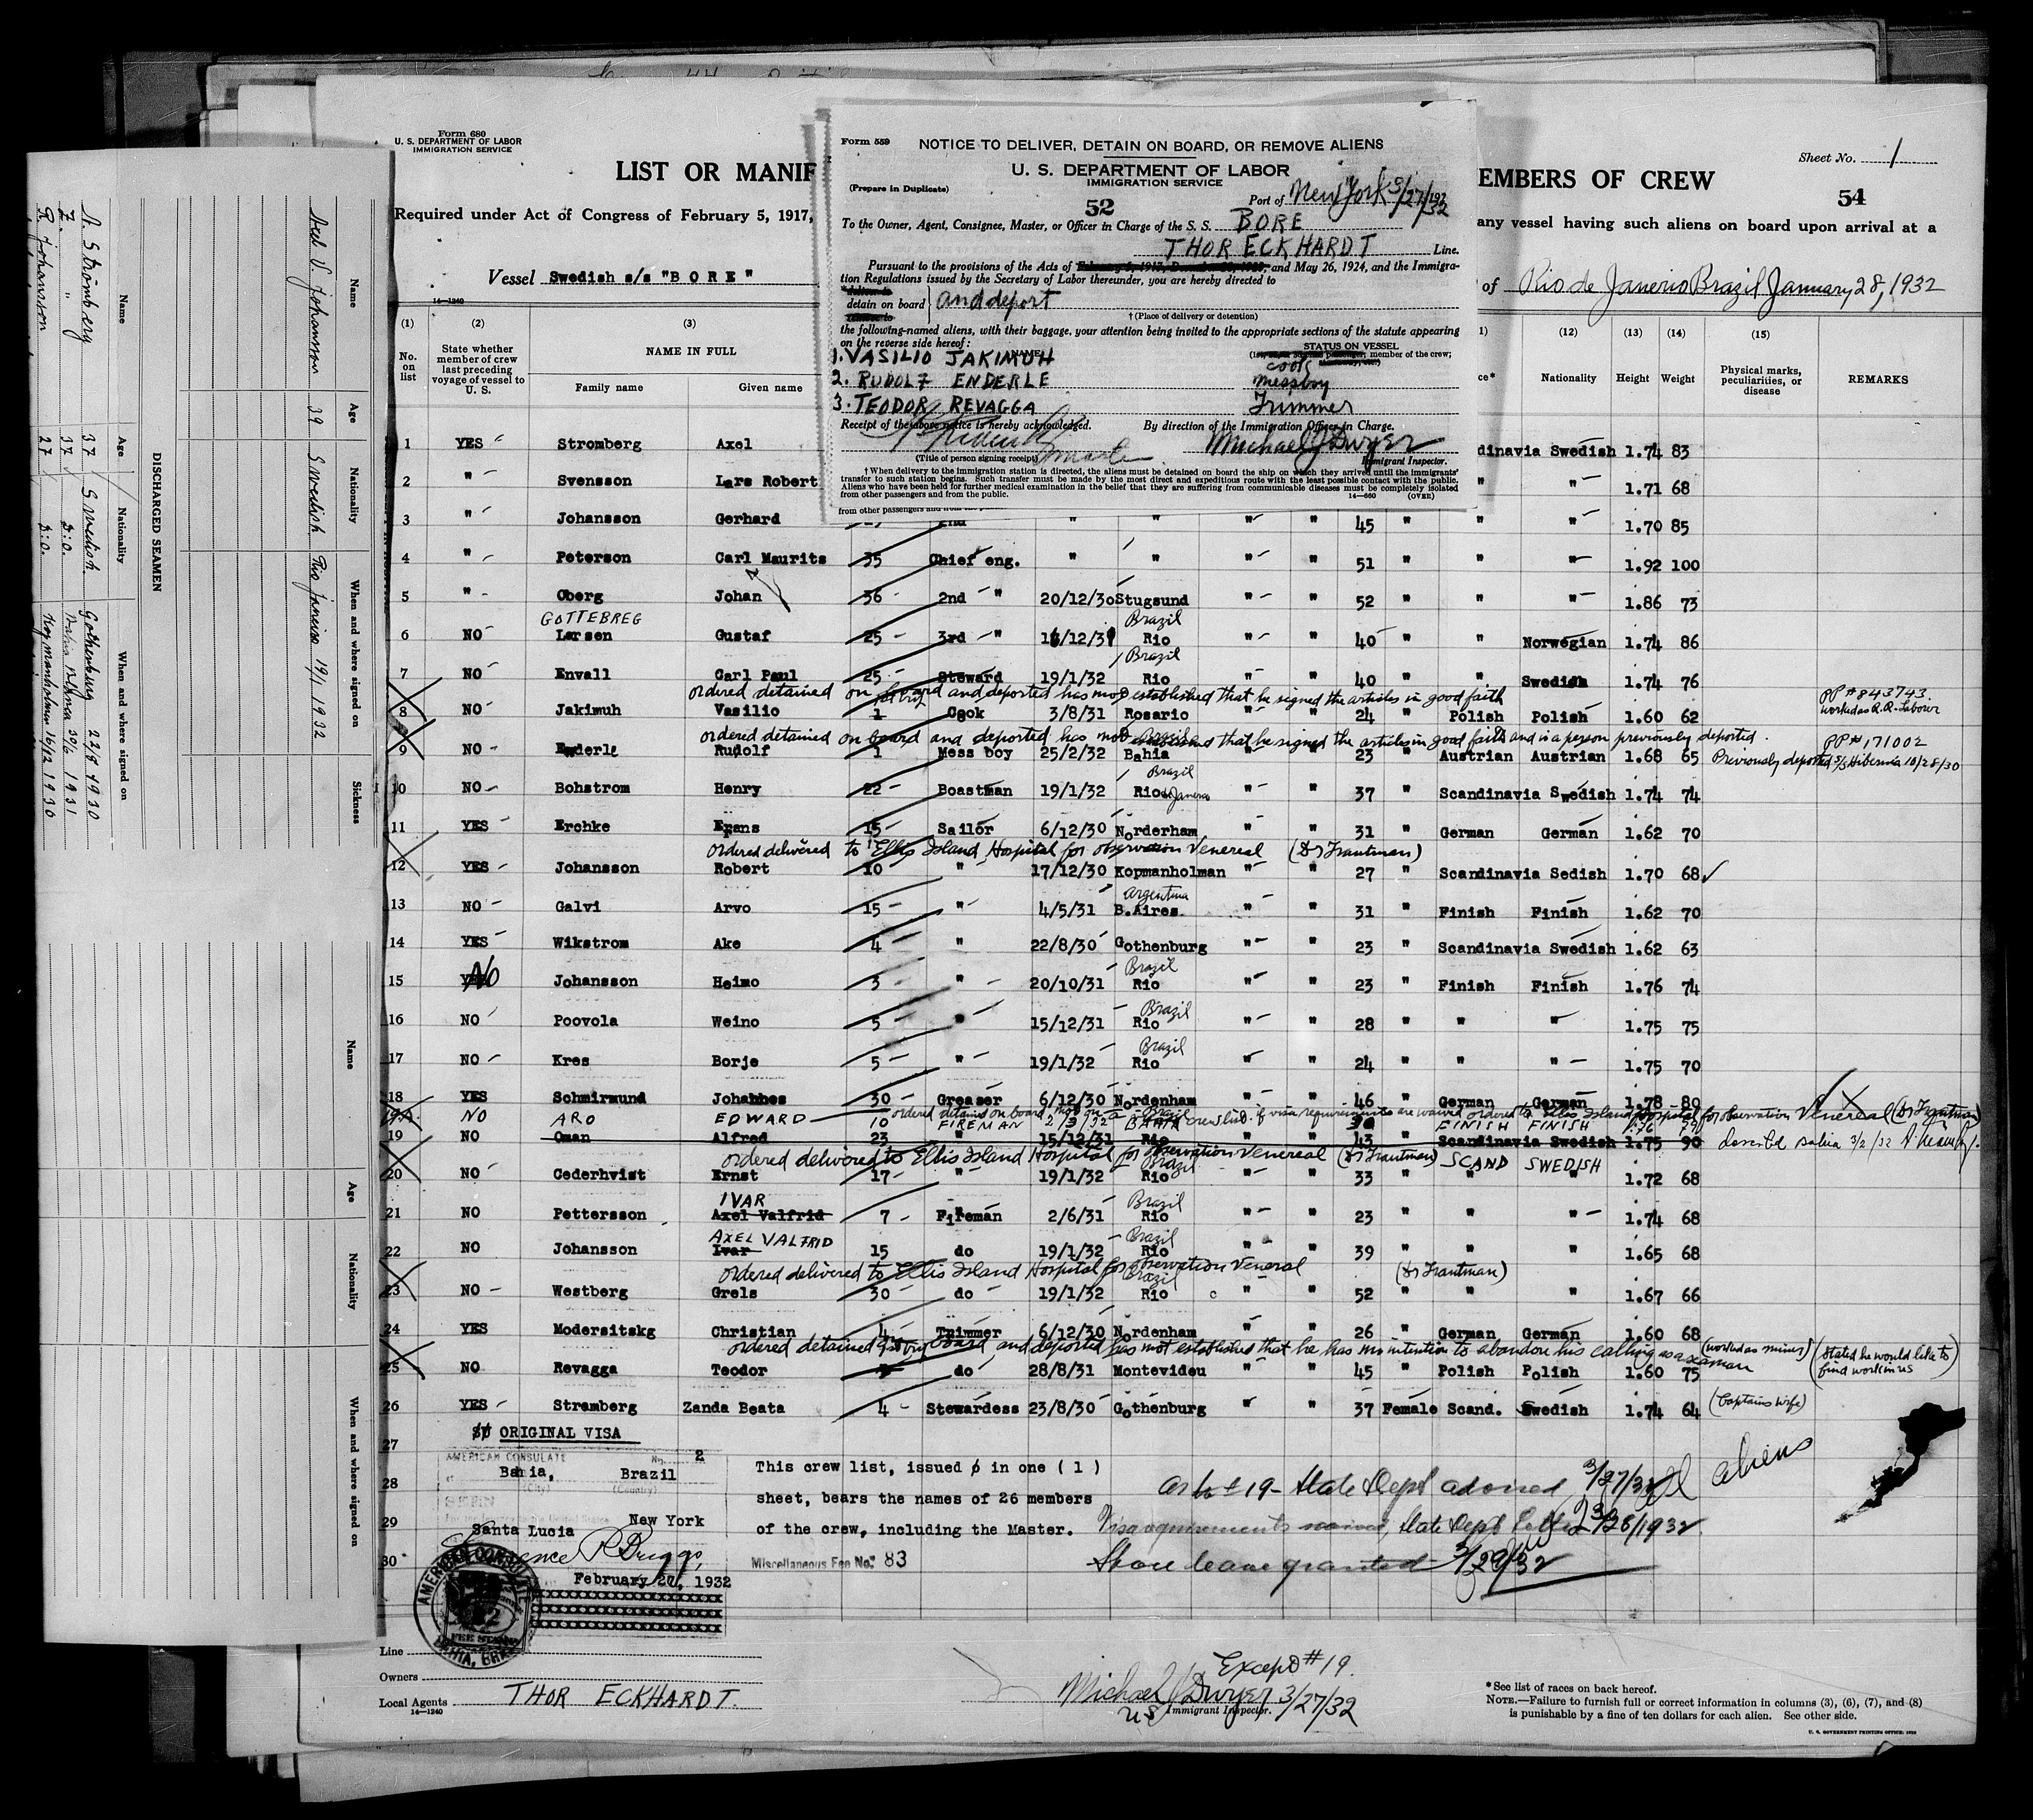 Form 680
U. S. DEPARTMENT OF LABOR
IMMIGRATION SERVICE
LIST OR MANIF
EMBERS OF CREW
Sheet No. 1
54
Required under Act of Congress of February 5, 1917,
any vessel having such aliens on board upon arrival at a
Vessel Swedish s/s "BORE"
of Rio de Janerio Brazil January 28, 1932
14-1240
Form 559
NOTICE TO DELIVER, DETAIN ON BOARD, OR REMOVE ALIENS
U. S. DEPARTMENT OF LABOR
IMMIGRATION SERVICE
(Prepare in Duplicate)
52
Port of New York 3/27/1932
To the Owner, Agent, Consignee, Master, or Officer in Charge of the S. S. BORE
THOR ECKHARDT Line.
Pursuant to the provisions of the Acts of February 5, 1917, and May 26, 1924, and the Immigra-
tion Regulations issued by the Secretary of Labor thereunder, you are hereby directed to
detain on board and deport
† (Place of delivery or detention)
the following-named aliens, with their baggage, your attention being invited to the appropriate sections of the statute appearing
on the reverse side hereof:
NAME STATUS ON VESSEL
member of the crew;
1. VASILIO JAKIMUH cook
2. RUDOLF ENDERLE messboy
3. TEODOR REVAGGA Trimmer
Receipt of the above notice is hereby acknowledged. By direction of the Immigration Officer in Charge.
Michael J Dwyer
(Title of person signing receipt) Immigrant Inspector.
† When delivery to the immigration station is directed, the aliens must be detained on board the ship on which they arrived until the immigrants'
transfer to such station begins. Such transfer must be made by the most direct and expeditious route with the least possible contact with the public.
Aliens who have been held for further medical examination in the belief that they are suffering from communicable diseases must be completely isolated
from other passengers and from the public.
14-660 (OVER)
from other passengers and from the
(1) (2) (3) (12) (13) (14) (15)
No. on list
State whether member of crew last preceding voyage of vessel to U. S.
NAME IN FULL
Family name Given name
ce* Nationality Height Weight
Physical marks, peculiarities, or disease
REMARKS
1 YES Stromberg Axel dinavia Swedish 1.74 83
2 " Svensson Lars Robert " " 1.71 68
3 " Johansson Gerhard 2nd " " " " 45 " " " 1.70 85
4 " Peterson Carl Maurits 35 Chief eng. " " " " 51 " " " 1.92 100
5 " Oberg Johan 36 2nd " 20/12/30 Stugsund " " 52 " " " 1.86 73
GOTTEBREG Brazil
6 NO Larsen Gustaf 25 3rd " 16/12/31 Rio " " 40 " " Norwegian 1.74 86
Brazil
7 NO Envall Carl Paul 25 Steward 19/1/32 Rio " " 40 " " Swedish 1.74 76
ordered detained on board and deported has not established that he signed the articles in good faith
PP # 843743.
worked as R.R. Laborer
8 NO Jakimuh Vasilio 1 Cook 3/8/31 Rosario " " 24 " Polish Polish 1.60 62
ordered detained on board and deported has not established that he signed the articles in good faith and is a person previously deported.
PP # 171002
9 NO Enderle Rudolf 1 Mess boy 25/2/32 Bahia " " 23 " Austrian Austrian 1.68 65 Previously deported S/S Hibernia 10/28/30
Brazil
10 NO Bohstrom Henry 22 Boastman 19/1/32 Rio de Janeiro " " 37 " Scandinavia Swedish 1.74 74
11 YES Erchke Erans 15 Sailor 6/12/30 Norderham " " 31 " German German 1.62 70
ordered delivered to Ellis Island Hospital for observation Venereal (Dr Trautman)
12 YES Johansson Robert 10 " 17/12/30 Kopmanholman " " 27 " Scandinavia Sedish 1.70 68
Argentina
13 NO Galvi Arvo 15 " 4/5/31 B.Aires. " " 31 " Finish Finish 1.62 70
14 YES Wikstrom Ake 4 " 22/8/30 Gothenburg " " 23 " Scandinavia Swedish 1.62 63
Brazil
15 No Johansson Heimo 3 " 20/10/31 Rio " " 23 " Finish Finish 1.76 74
Brazil
16 NO Poovola Weino 5 " 15/12/31 Rio " " 28 " " " 1.75 75
Brazil
17 NO Kres Borje 5 " 19/1/32 Rio " " 24 " " " 1.75 70
18 YES Schmirmund Johannes 30 Greaser 6/12/30 Nordenham " " 46 " German German 1.78 80
ordered detained on board if visa requirements are waived ordered to Ellis Island Hospital for observation Venereal (Dr Trautman)
19A NO ARO EDWARD 10 FIREMAN 2/3/32 BAHIA FINISH FINISH
19 NO Oman Alfred 23 " 15/12/31 Rio " " 43 " Scandinavia Swedish 1.75 90 deserted Bahia 3/2/32
ordered delivered to Ellis Island Hospital for observation Venereal (Dr Trautman) SCAND SWEDISH
Brazil
20 NO Cederhvist Ernst 17 " 19/1/32 Rio " " 33 " " " 1.72 68
IVAR Brazil
21 NO Pettersson Axel Valfrid 7 Fireman 2/6/31 Rio " " 23 " " " 1.74 68
AXEL VALFRID Brazil
22 NO Johansson Ivar 15 do 19/1/32 Rio " " 39 " " " 1.65 68
ordered delivered to Ellis Island Hospital for observation Veneral (Dr Trautman)
Brazil
23 NO Westberg Grels 30 do 19/1/32 Rio " " 52 " " " 1.67 66
24 YES Modersitskg Christian 4 Trimmer 6/12/30 Nordenham " " 26 " German German 1.60 68
ordered detained on board and deported has not established that he has no intention to abandon his calling as a seaman (worked as miner) (stated he would like to find work in US
25 NO Revagga Teodor do 28/8/31 Montevideu " " 45 " Polish Polish 1.60 75
26 YES Stramberg Zanda Beata 4 Stewardess 23/8/30 Gothenburg " " 37 Female Scand. Swedish 1.74 64 (Captains wife)
27
28
29
30
ORIGINAL VISA
AMERICAN CONSULATE No. 2
at Bahia, Brazil
(City) (Country)
SEEN
For the journey to the United States
Santa Lucia New York
Briggs,
February 20, 1932
AMERICAN CONSULATE
FEE STAMP
BAHIA, BRAZIL
This crew list, issued in one ( 1 )
sheet, bears the names of 26 members
of the crew, including the Master.
Miscellaneous Fee No. 83
As to # 19 - State Dept advised 3/27/32
Visa requirements waived, State Dept letter 3/28/1932
Shore leave granted 3/29/32
all aliens
Line
Owners
Local Agents THOR ECKHARDT.
14-1240
Except #19.
Michael J Dwyer 3/27/32
US Immigrant Inspector.
* See list of races on back hereof.
NOTE.—Failure to furnish full or correct information in columns (3), (6), (7), and (8)
is punishable by a fine of ten dollars for each alien. See other side.
U. S. GOVERNMENT PRINTING OFFICE: 1928
DISCHARGED SEAMEN
Name Age Nationality When and where signed on Sickness
Axel V. Johansson 39 Swedish Rio Janeiro 19/1 1932
Name Age Nationality When and where signed on
A. Strömberg 37 Swedish Gothenburg 22/8 1930
Z. " 37 D:o. 30/6 1931
R. Johansson 27 D:o. Kopmanholmen 16/12 1930
Name Age Nationality When and where signed on